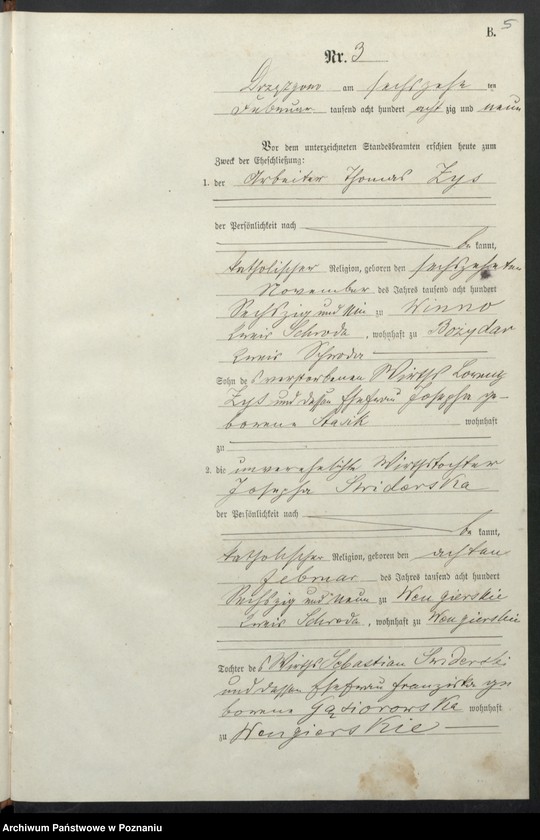 B. 5
Nr. 3
am sechszehn ten
Februar tausend acht hundert acht zig und neun
Vor dem unterzeichneten Standesbeamten erschien heute zum
Zweck der Eheschließung:
1. der Arbeiter Thomas Zys
der Persönlichkeit nach
be kannt,
katholischer Religion, geboren den sechszehnten
November des Jahres tausend acht hundert
Sechszig und zu Winno
Kreis Schroda, wohnhaft zu Bozydar
Kreis Schroda
Sohn des verstorbenen Wirths Lorenz
Zys und dessen Ehefrau Josepha ge-
borene Stasik wohnhaft
zu
2. die unverehelichte Wirthstochter
Josepha Swiderska
der Persönlichkeit nach
be kannt,
katholischer Religion, geboren den achten
Februar des Jahres tausend acht hundert
Sechszig und neun zu Wengierskie
Kreis Schroda, wohnhaft zu Wengierskie
Tochter des Wirths Sebastian Swiderski
und dessen Ehefrau Franziska ge
borene Gąsiorowska wohnhaft
zu Wengierskie
Archiwum Państwowe w Poznaniu